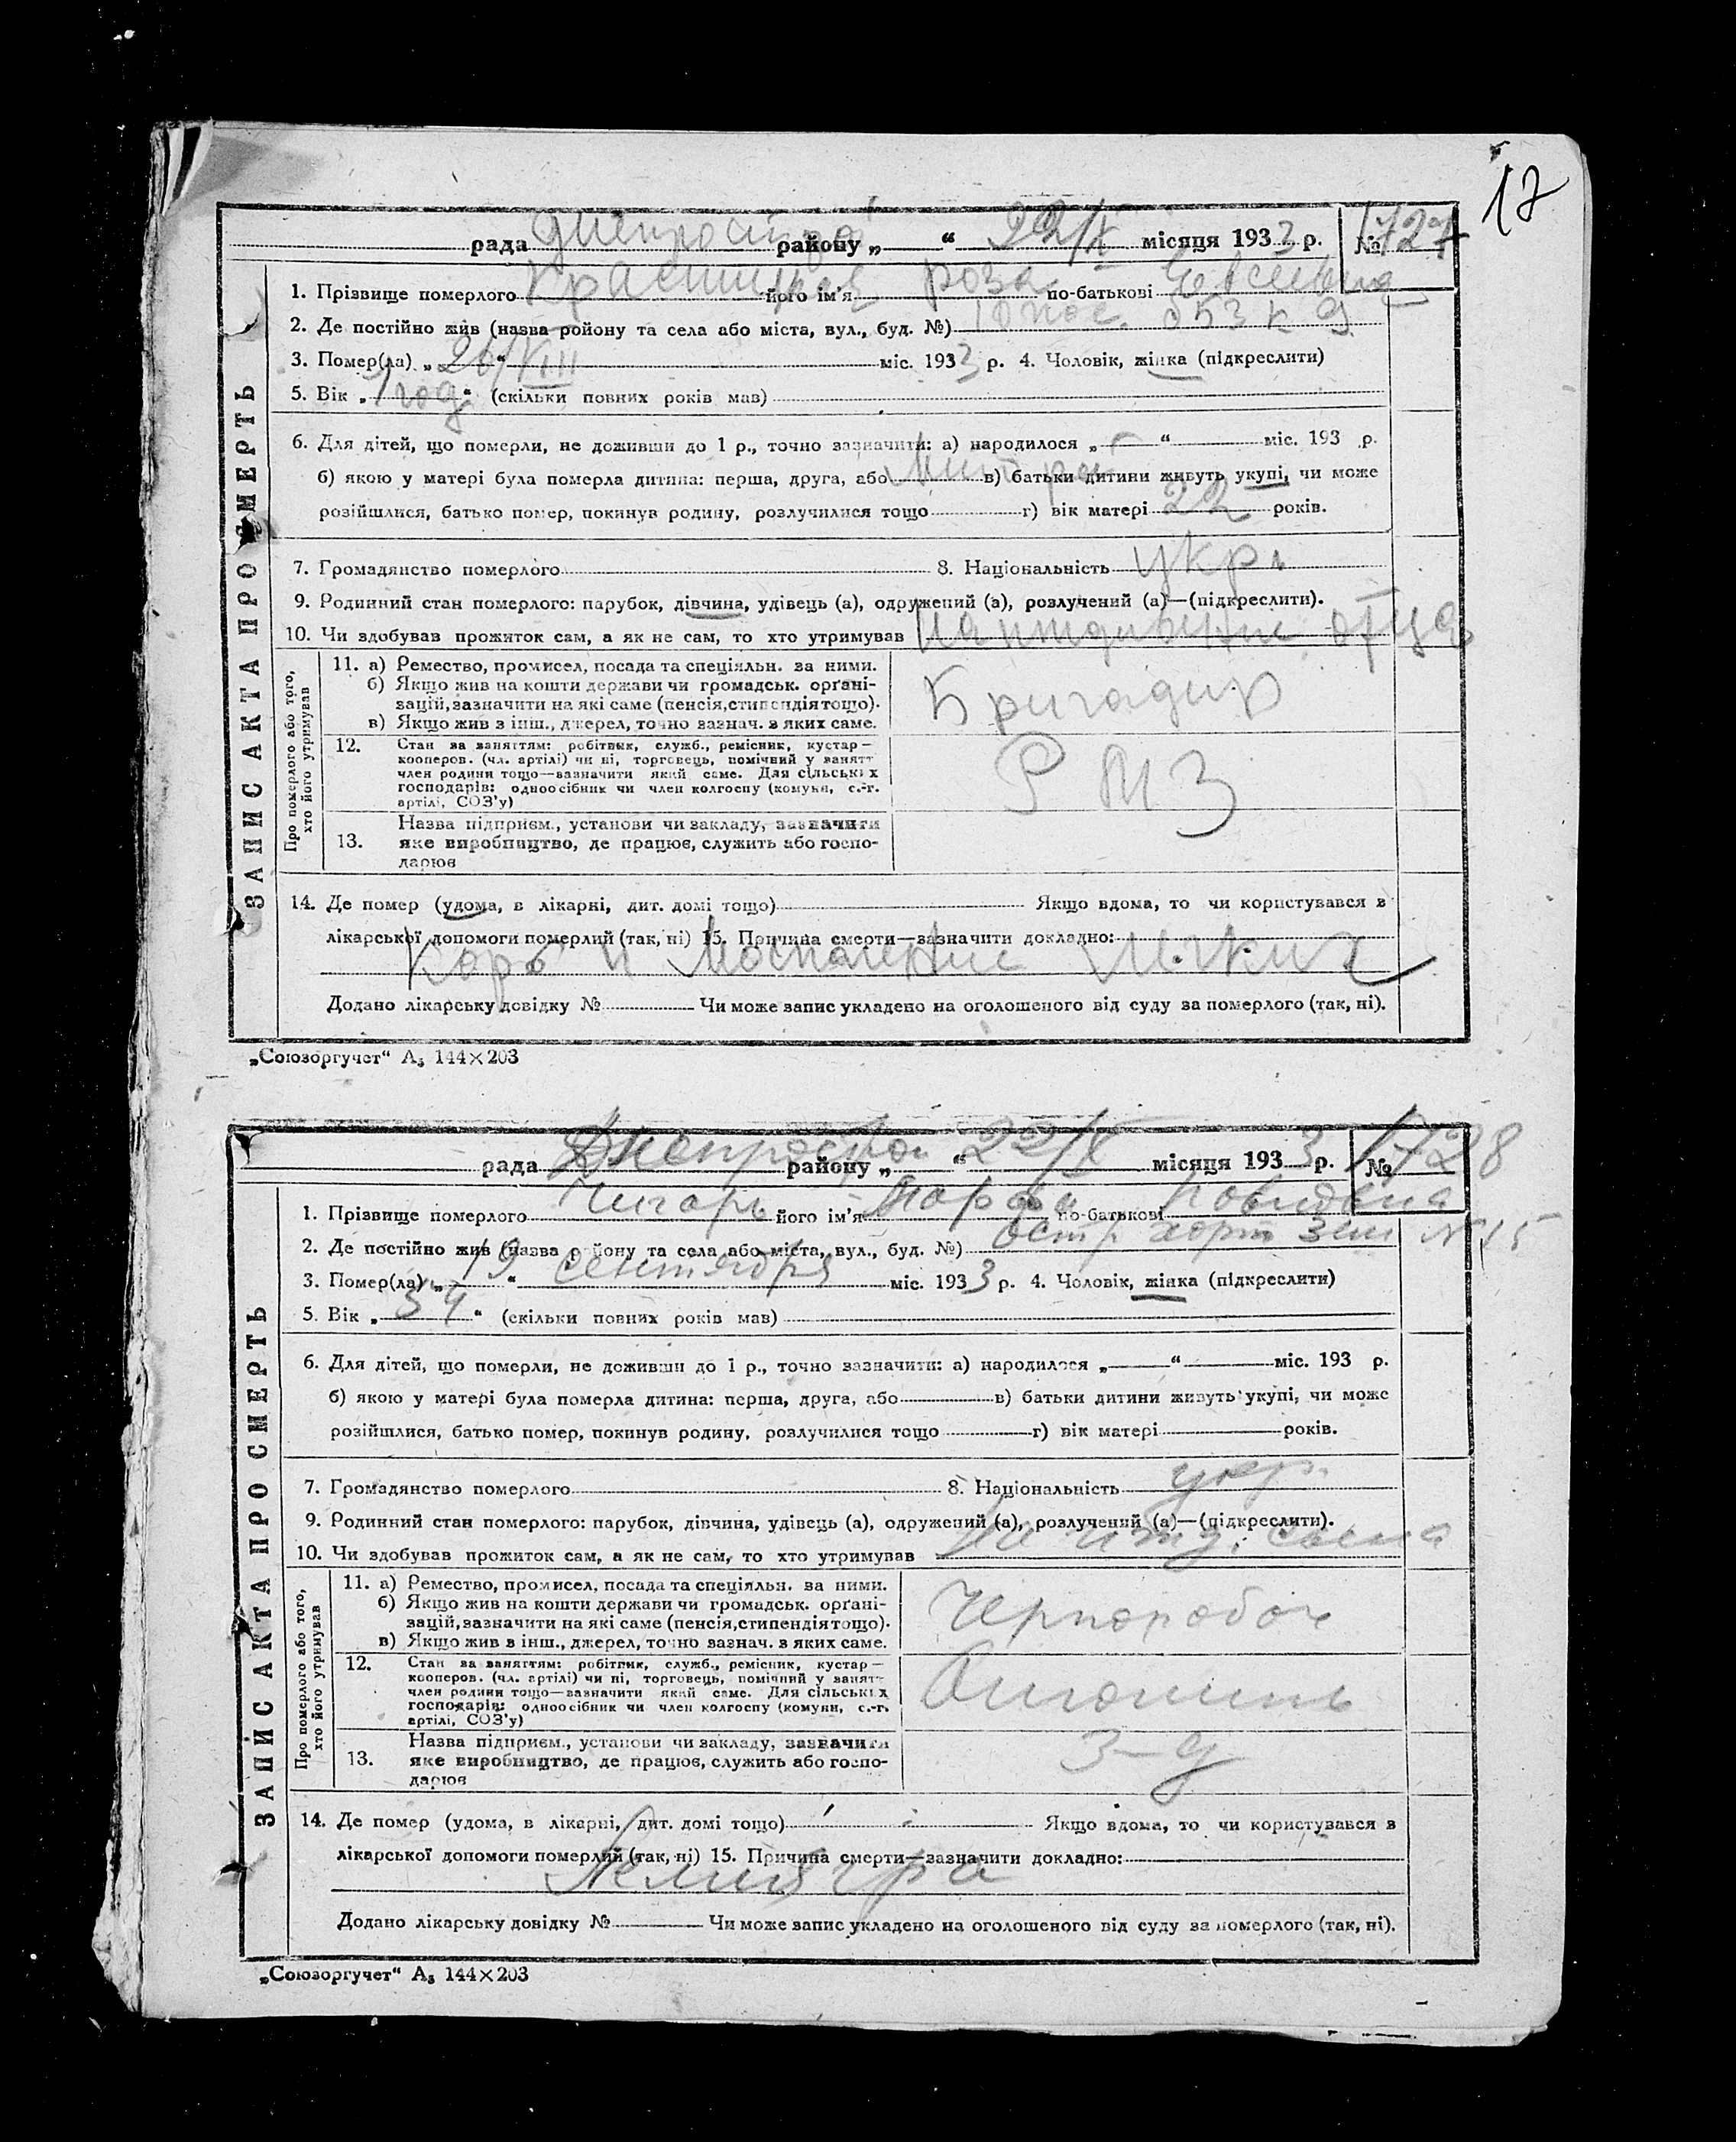 17
рада Днепрострой району „ “ 22/X місяця 1933 р. № 1727
1. Прізвище померлого його ім'я Роза по-батькові
2. Де постійно жив (назва району та села або міста, вул., буд. №) 10 пос. 053 к 9
3. Помер(ла) „26/VIII“ міс. 1933 р. 4. Чоловік, жінка (підкреслити)
5. Вік „1 год“ (скільки повних років мав)
6. Для дітей, що померли, не доживши до 1 р., точно зазначити: а) народилося „ “ міс. 193 р.
б) якою у матері була померла дитина: перша, друга, або в) батьки дитини живуть укупі, чи може
розійшлися, батько помер, покинув родину, розлучилися тощо г) вік матері 22 років.
7. Громадянство померлого 8. Національність укр.
9. Родинний стан померлого: парубок, дівчина, удівець (а), одружений (а), розлучений (а)—(підкреслити).
10. Чи здобував прожиток сам, а як не сам, то хто утримував На иждивение отца
ЗАПИС АКТА ПРО СМЕРТЬ
Про померлого або того, хто його утримував
11. а) Ремество, промисел, посада та спеціяльн. за ними.
б) Якщо жив на кошти держави чи громадськ. органі-
зацій, зазначити на які саме (пенсія, стипендія тощо).
в) Якщо жив з інш., джерел, точно зазнач. з яких саме.
Бригадир
12. Стан за заняттям: робітник, служб., ремісник, кустар—
кооперов. (чл. артілі) чи ні, торговець, помічний у занятт
член родини тощо—зазначити який саме. Для сільських
господарів: одноосібник чи член колгоспу (комуни, с.-г.
артілі, СОЗ'у)
РМЗ
13. Назва підприєм., установи чи закладу, зазначити
яке виробництво, де працює, служить або госпо-
дарює
14. Де помер (удома, в лікарні, дит. домі тощо) Якщо вдома, то чи користувався в
лікарської допомоги померлий (так, ні) 15. Причина смерти—зазначити докладно:
Корь и Воспаление легких
Додано лікарську довідку № Чи може запис укладено на оголошеного від суду за померлого (так, ні).
„Союзоргучет“ А₅ 144×203
рада Днепрострой району „ “ 22/X місяця 1933 р. № 1728
1. Прізвище померлого його ім'я Марфа по-батькові
2. Де постійно жив (назва району та села або міста, вул., буд. №) Остр. хорт. зем N 15
3. Помер(ла) „19“ сентября міс. 1933 р. 4. Чоловік, жінка (підкреслити)
5. Вік „ “ (скільки повних років мав)
6. Для дітей, що померли, не доживши до 1 р., точно зазначити: а) народилося „ “ міс. 193 р.
б) якою у матері була померла дитина: перша, друга, або в) батьки дитини живуть укупі, чи може
розійшлися, батько помер, покинув родину, розлучилися тощо г) вік матері років.
7. Громадянство померлого 8. Національність укр.
9. Родинний стан померлого: парубок, дівчина, удівець (а), одружений (а), розлучений (а)—(підкреслити).
10. Чи здобував прожиток сам, а як не сам, то хто утримував На ижд. сына
ЗАПИС АКТА ПРО СМЕРТЬ
Про померлого або того, хто його утримував
11. а) Ремество, промисел, посада та спеціяльн. за ними.
б) Якщо жив на кошти держави чи громадськ. органі-
зацій, зазначити на які саме (пенсія, стипендія тощо).
в) Якщо жив в інш., джерел, точно зазнач. з яких саме.
Чернорабоч
12. Стан за заняттям: робітник, служб., ремісник, кустар—
кооперов. (чл. артілі) чи ні, торговець, помічний у занятт
член родини тощо—зазначити який саме. Для сільських
господарів: одноосібник чи член колгоспу (комуни, с.-г.
артілі, СОЗ'у)
13. Назва підприєм., установи чи закладу, зазначити
яке виробництво, де працює, служить або госпо-
дарює
З-д
14. Де помер (удома, в лікарні, дит. домі тощо) Якщо вдома, то чи користувався в
лікарської допомоги померлий (так, ні) 15. Причина смерти—зазначити докладно:
Пеллагра
Додано лікарську довідку № Чи може запис укладено на оголошеного від суду за померлого (так, ні).
„Союзоргучет“ А₅ 144×203